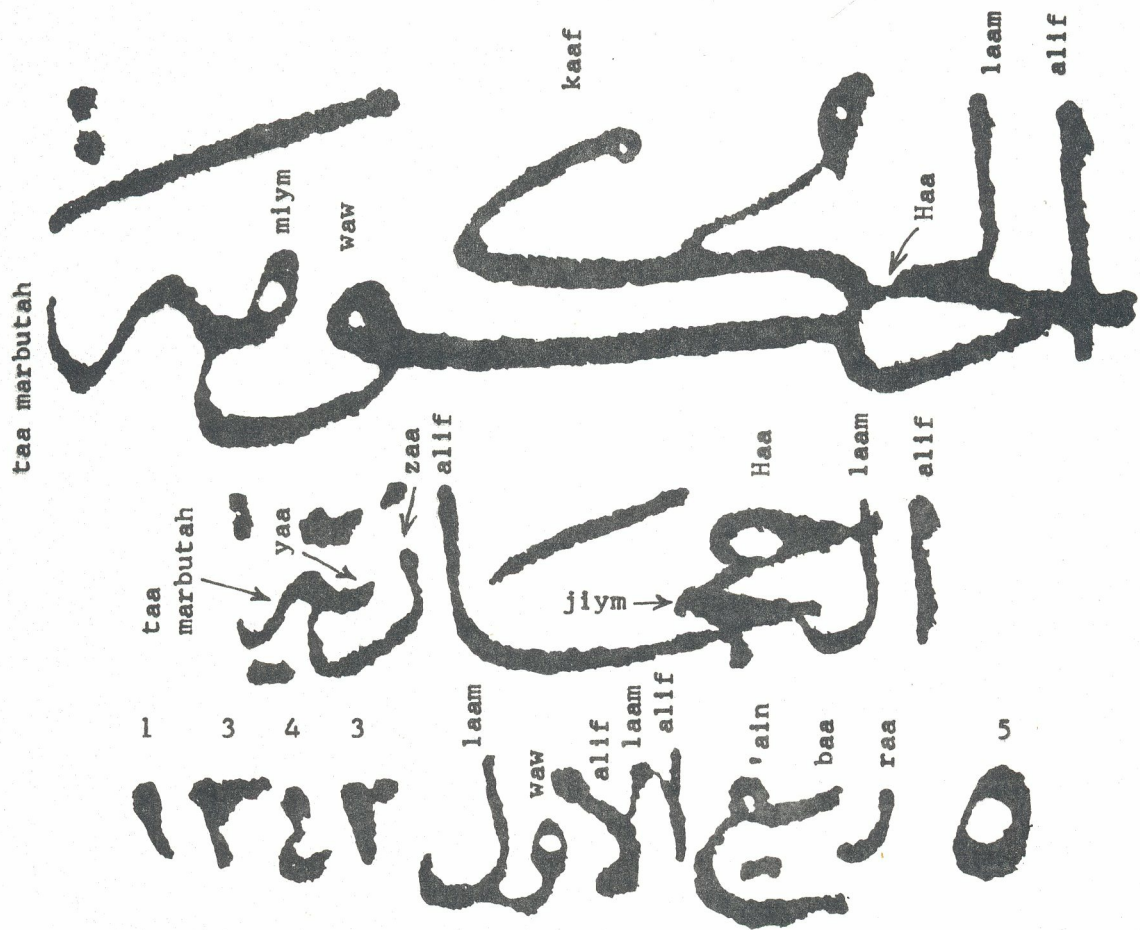 taa marbutah
miym
waw
kaaf
Haa
laam
alif
الحكومة
taa marbutah
yaa
zaa
alif
jiym
Haa
laam
alif
الحجازية
1 3 4 3
laam
waw
alif
laam
alif
'ain
baa
raa
5
٥ ربيع الاول ١٣٤٣